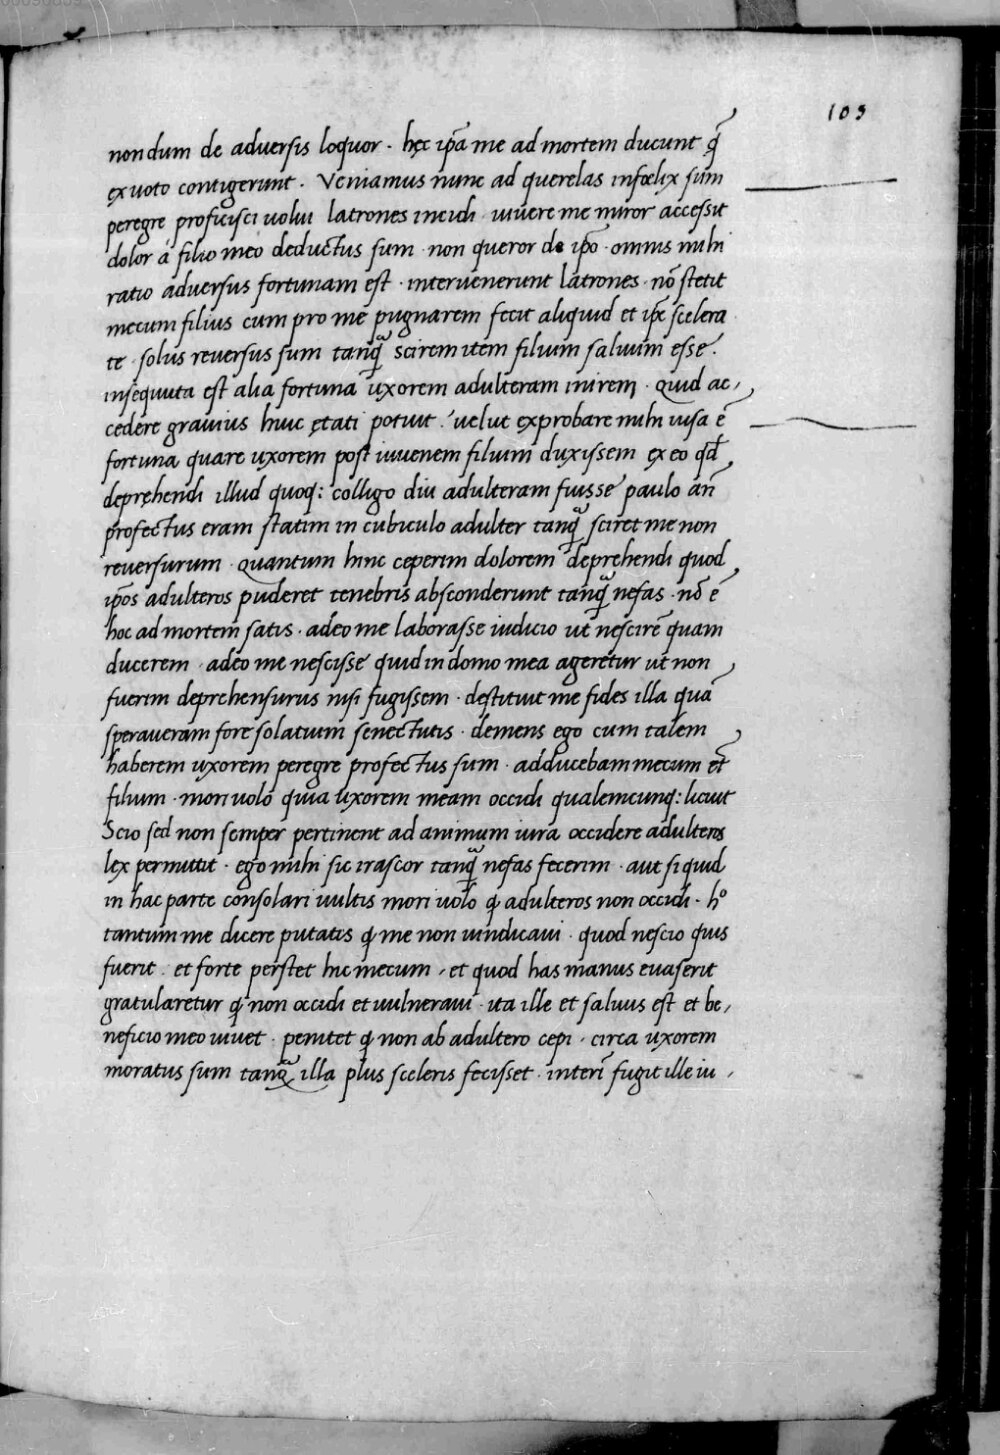 103
nondum de adversis loquor · hęc ip̄a me ad mortem ducunt q̄
ex voto contigerunt · Veniamus nunc ad querelas infœlix sum
peregre proficisci uolui latrones incidi · uiuere me miror accessit
dolor á filio meo deductus sum · non queror de ip̄o · omnis mihi
ratio adversus fortunam est · intervenerunt latrones · nō stetit
mecum filius cum pro me pugnarem fecit aliquid et ip̄e scelera
te · solus reversus sum tanq̄ scirem item filium saluum esse ·
insequuta est alia fortuna uxorem adulteram inirem · Quid ac,
cedere grauius huic ętati potuit · velut exprobare mihi uisa ē
fortuna quare uxorem post iuuenem filium duxissem ex eo qd̄
deprehendi illud quoq: colligo diu adulteram fuisse paulo an̄
profectus eram statim in cubiculo adulter tanq̄ sciret me non
reuersurum · Quantum hinc ceperim dolorem deprehendi quod
ip̄os adulteros puderet tenebris absconderunt tanq̄ nefas · nō ē
hoc ad mortem satis · adeo me laborasse iudicio ut nescirē quam
ducerem · adeo me nescisse quid in domo mea ageretur ut non
fuerim deprehensurus nisi fugissem · destituit me fides illa quā
speraueram fore solatium senectutis · demens ego cum talem
haberem uxorem peregre profectus sum · adducebam mecum et
filium · mori uolo quia uxorem meam occidi qualemcunq: licuit
Scio sed non semper pertinent ad animum iura occidere adulteros
lex permittit · ego mihi sic irascor tanq̄ nefas fecerim · aut si quid
in hac parte consolari uultis mori uolo q adulteros non occidi · hᵒ
tantum me dicere putatis q me non uindicaui · quod nescio quis
fuerit · et forte perstet hic mecum , et quod has manus euaserit
gratularetur q non occidi et uulneraui · ita ille et saluus est et be,
neficio meo uiuet · penitet q non ab adultero cepi · circa uxorem
moratus sum tanq̄ illa plus sceleris fecisset · interī fugit ille iu ,